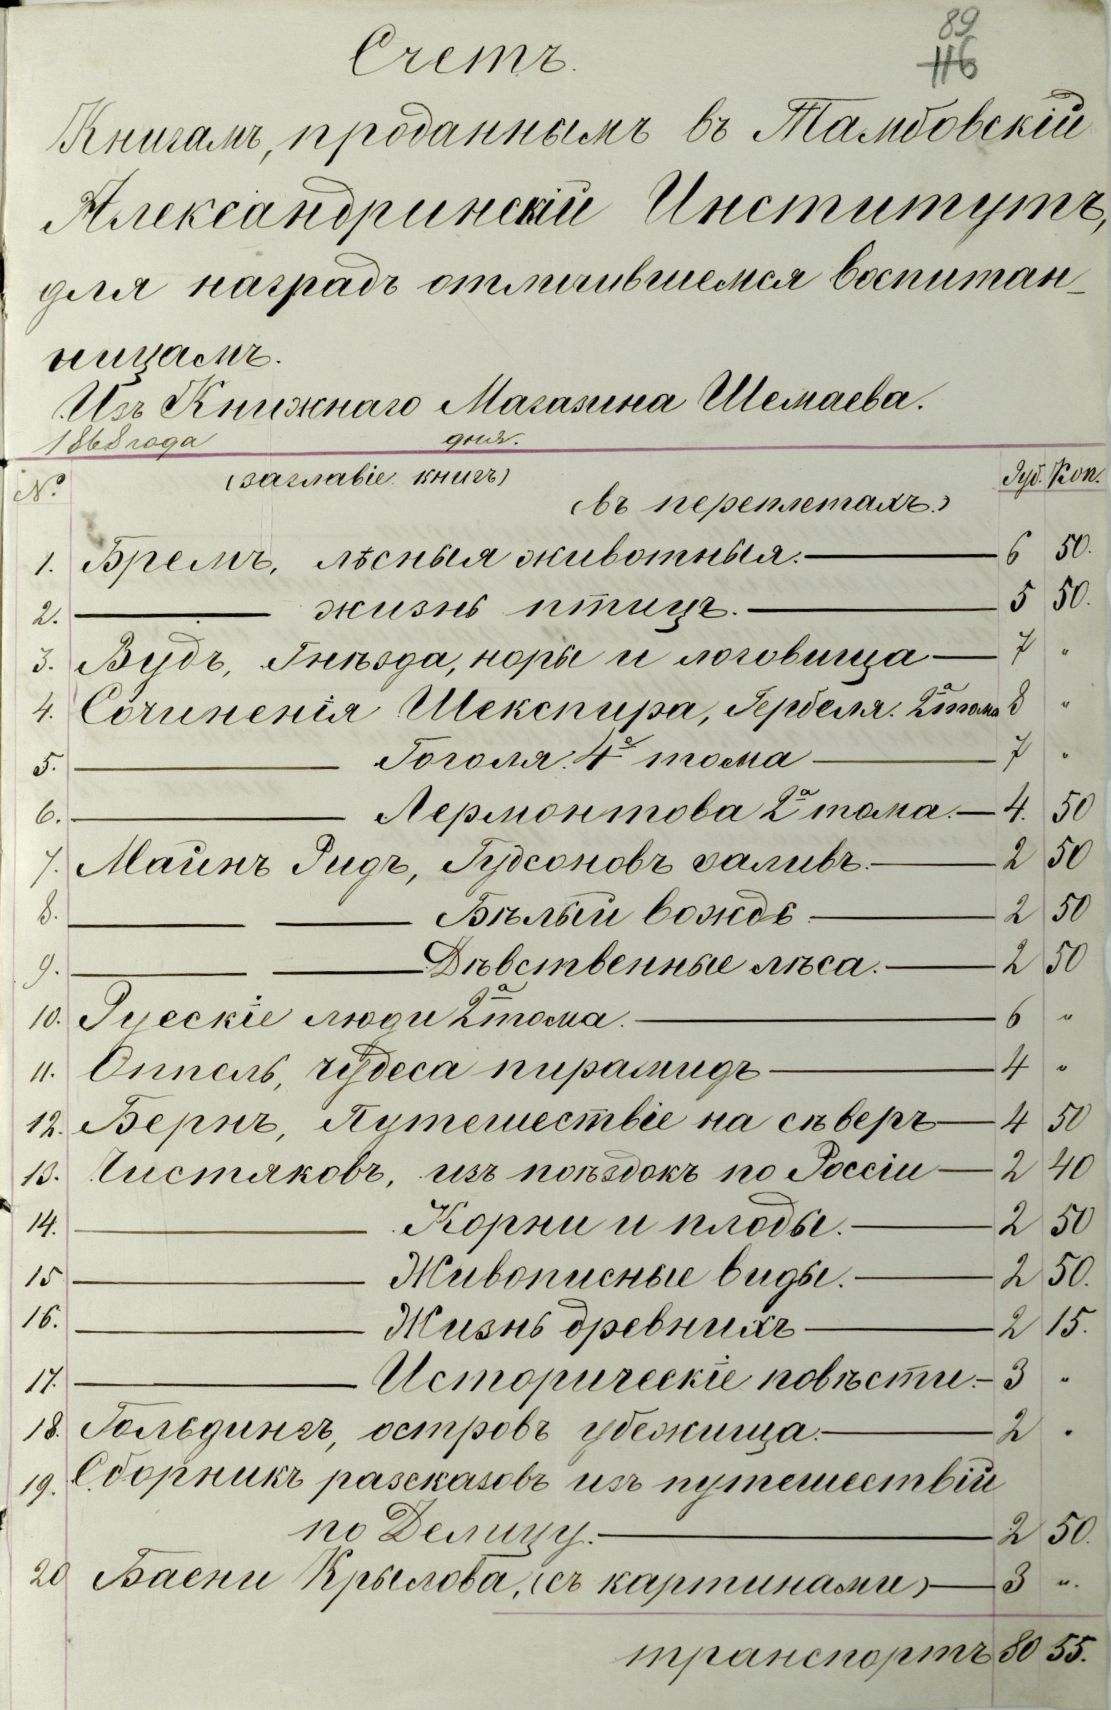 89
116
Счетъ.
Книгамъ, проданнымъ въ Тамбовскій
Александринскій Институтъ,
для наградъ отличившемся воспитан-
ницамъ.
Изъ Книжнаго Магазина Шемаева.
1868 года дня.
№ (заглавіе книгъ) Руб. Коп.
(въ переплетахъ.)
1. Бремъ, лѣсныя животныя. — 6 50.
2. — жизнь птицъ. — 5 50.
3. Вудъ, Гнѣзда, норы и логовища — 7 "
4. Сочиненія Шекспира, Гербеля. 2а тома 8 "
5. — Гоголя. 4е тома — 7 "
6. — Лермонтова 2а тома. — 4. 50
7. Майнъ Ридъ, Гудсоновъ заливъ. — 2 50
8. — — Бѣлый вождь — 2 50
9. — — Дѣвственные лѣса. — 2 50
10. Русскіе люди 2а тома. — 6 "
11. Оппель, чудеса пирамидъ — 4 "
12. Бернъ, Путешествіе на сѣверъ — 4 50
13. Чистяковъ, изъ поѣздокъ по Россіи — 2 40
14. — Корни и плоды. — 2 50
15 — Живописные виды. — 2 50.
16. — Жизнь древнихъ — 2 15.
17. — Историческіе повѣсти. — 3 "
18. Гольдингъ, островъ убежища. — 2 "
19. Сборникъ разсказовъ изъ путешествій
по Делицу. — 2 50.
20 Басни Крылова, (съ картинами) — 3 ".
транспортъ 80 55.